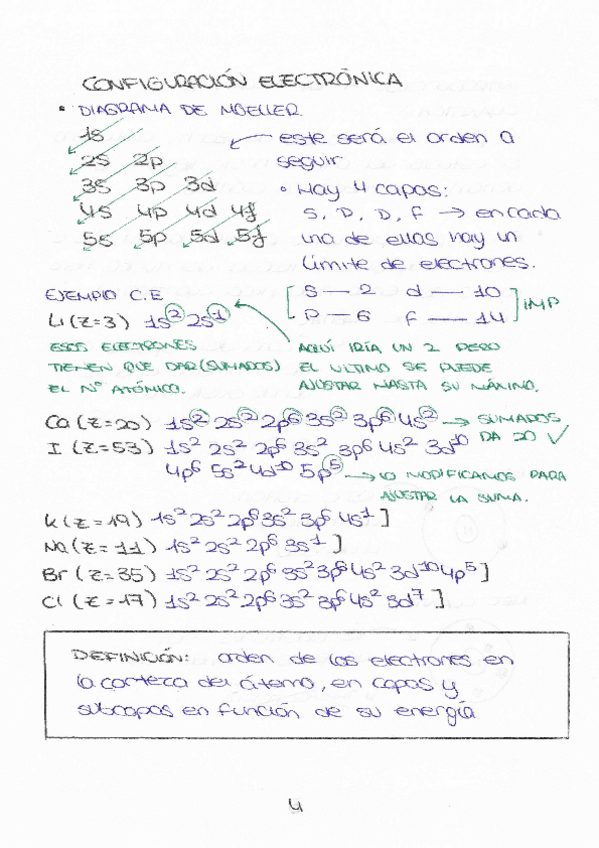 CONFIGURACIÓN ELECTRÓNICA
• DIAGRAMA DE MOELLER
1s
2s 2p
3s 3p 3d
4s 4p 4d 4f
5s 5p 5d 5f
este será el orden a
seguir
• Hay 4 capas:
S, P, D, F → en cada
una de ellas hay un
límite de electrones.
S — 2 d — 10
P — 6 f — 14
IMP
EJEMPLO C.E
Li (Z=3) 1s² 2s¹
ESOS ELECTRONES
TIENEN QUE DAR (SUMADOS)
EL Nº ATÓMICO.
AQUÍ IRÍA UN 2 PERO
EL ULTIMO SE PUEDE
AJUSTAR HASTA SU MÁXIMO.
Ca (Z=20) 1s² 2s² 2p⁶ 3s² 3p⁶ 4s² → SUMADOS
DA 20 ✓
I (Z=53) 1s² 2s² 2p⁶ 3s² 3p⁶ 4s² 3d¹⁰
4p⁶ 5s² 4d¹⁰ 5p⁵ → LO MODIFICAMOS PARA
AJUSTAR LA SUMA.
K (Z=19) 1s² 2s² 2p⁶ 3s² 3p⁶ 4s¹ ]
Na (Z=11) 1s² 2s² 2p⁶ 3s¹ ]
Br (Z=35) 1s² 2s² 2p⁶ 3s² 3p⁶ 4s² 3d¹⁰ 4p⁵ ]
Cl (Z=17) 1s² 2s² 2p⁶ 3s² 3p⁶ 4s² 3d⁷ ]
DEFINICIÓN: orden de los electrones en
la corteza del átomo, en capas y
subcapas en función de su energía
4